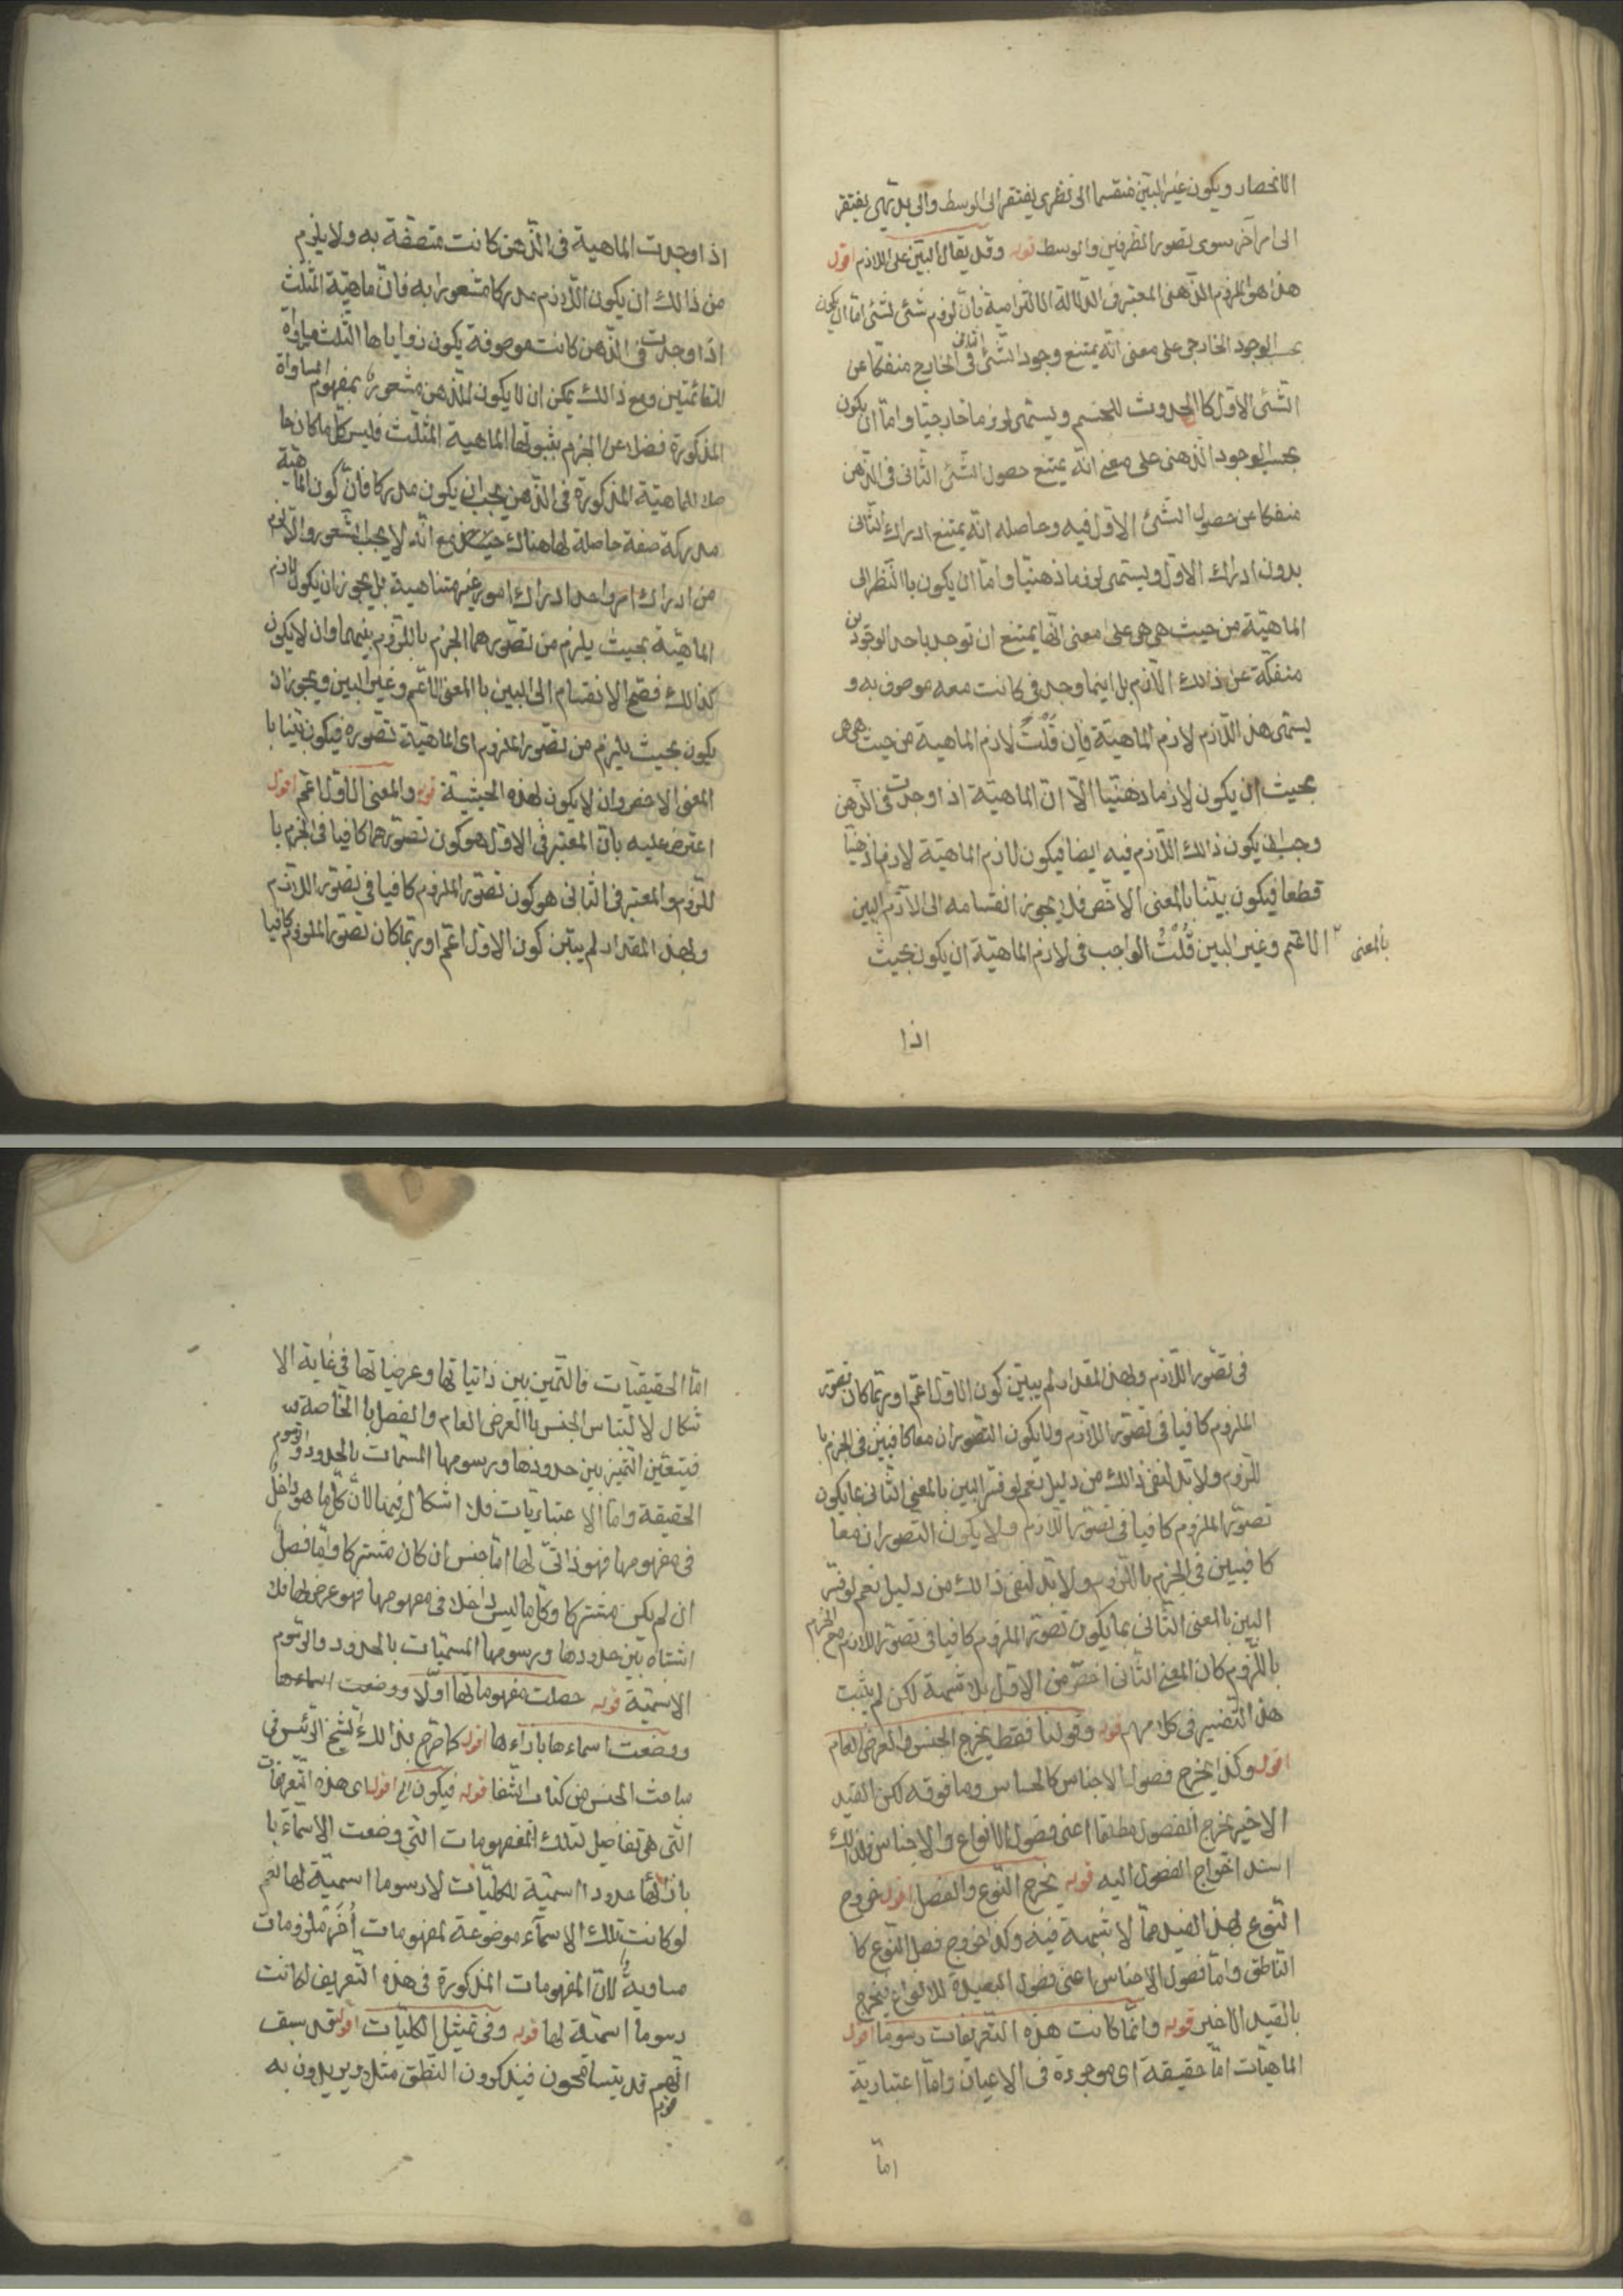 الانحصار ويكون غير البيّن منقسما الى نظرى يفتقر الى الوسط والى بديهى يفتقر
الى امر آخر سوى تصور الطرفين والوسط قوله وقد يقال البيّن على اللازم اقول
هذا هو اللزوم الذهنى المعتبر فى الدلالة الالتزامية فان لزوم شئ لشئ اما ان يكون
بحسب الوجود الخارجى على معنى انه يمتنع وجود الشئ الثانى فى الخارج منفكا عن
الشئ الاول كالحدوث للجسم ويسمى لزوما خارجيا واما ان يكون
بحسب الوجود الذهنى على معنى انه يمتنع حصول الشئ الثانى فى الذهن
منفكا عن حصول الشئ الاول فيه وحاصله انه يمتنع ادراك الثانى
بدون ادراك الاول ويسمى لزوما ذهنيا واما ان يكون باالنظر الى
الماهية من حيث هى هى على معنى انها يمتنع ان توجد باحد الوجودين
منفكة عن ذالك اللازم بل اينما وجدت كانت معه موصوف به و
يسمى هذا اللازم لازم الماهية فان قلت لازم الماهية من حيث هى هى
بحيث ان يكون لازما ذهنيا الا ان الماهية اذا وجدت فى الذهن
وجب ان يكون ذالك اللازم فيه ايضا فيكون لازم الماهية لازما ذهنيا
قطعا فيكون بيّنا بالمعنى الاخص فلا يجوز انقسامه الى اللازم البين
بالمعنى الاعم وغير البين قلت الواجب فى لازم الماهية ان يكون بحيث
اذا
اذا وجدت الماهية فى الذهن كانت متصفة به ولا يلزم
من ذالك ان يكون اللازم مدركا مشعورا به فان ماهية المثلث
اذا وجدت فى الذهن كانت موصوفة يكون زواياها الثلث مساواة
للقائمتين ومع ذالك يمكن ان لا يكون للذهن مشعورة بمفهوم المساواة
المذكورة فضلا عن الجزم بثبوتها الماهية المثلث فليس كل ما كان حا
صلا للماهية المذكورة فى الذهن يجب ان يكون مدركا فان كون الماهية
مدركة صفة حاصلة لها هناك حينئذ مع انه لا يجب الشعور والا لزم
من ادراك امر واحد ادراك امور غير متناهية بل يجوز ان يكون لازم
الماهية بحيث يلزم من تصورهما الجزم باللزوم بينهما وان لا يكون
كذالك فصح الانقسام الى البين باالمعنى الاعم وغير البين ويجوز ان
يكون بحيث يلزم من تصور الملزوم اى الماهية تصوره فيكون بينا با
المعنى الاخص وان لا يكون لهذه الحيثية قوله والمعنى الاول اعم اقول
اعترض عليه بان المعتبر فى الاول هو كون تصورهما كافيا فى الجزم با
للزوم والمعتبر فى الثانى هو كون تصور الملزوم كافيا فى تصور اللازم
وبهذا المقدار لم يبين كون الاول اعم اوربما كان تصور الملزوم كافيا
فى تصور اللازم وبهذا المقدار لم يبين كون الاول اعم اوربما كان تصور
الملزوم كافيا فى تصور اللازم ولا يكون التصوران معا كافيين فى الجزم با
للزوم ولا بد لنفى ذالك من دليل نعم لو فسر البين بالمعنى الثانى بما يكون
تصور الملزوم كافيا فى تصور اللازم ولا يكون التصوران معا
كافيين فى الجزم باللزوم ولا بد لنفى ذالك من دليل نعم لو فسر
البين بالمعنى الثانى بما يكون تصور الملزوم كافيا فى تصور اللازم مع الجزم
باللزوم كان المعنى الثانى اخص من الاول بلا شبهة لكن لم يثبت
هذا التفسير فى كلامهم قوله وقولنا فقط يخرج الجنس والعرض العام
اقول وكذا يخرج فصول الاجناس كالحساس وما فوقه لكن القيد
الاخير يخرج الفصول مطلقا اعنى فصول الانواع والاجناس ولذلك
اسند اخراج الفصول اليه قوله يخرج النوع والفصل اقول خروج
النوع بهذا القيد مما لا شبهة فيه وكذا خروج فصل النوع كا
الناطق واما فصول الاجناس اعنى فصول البعيدة للانواع فيخرج
بالقيد الاخير قوله وانما كانت هذه التعريفات رسوما اقول
الماهيات اما حقيقة اى موجودة فى الاعيان واما اعتبارية
اما
اما الحقيقيات فالتمييز بين ذاتياتها وعرضياتها فى غاية الا
شكال لالتباس الجنس باالعرض العام والفصل باالخاصة
فيتعين التميز بين حدودها ورسومها المسمات بالحدود والرسوم
الحقيقة واما الاعتباريات فلا اشكال فيها لان كل ما هو داخل
فى مفهومها فهو ذاتى لها اما جنس ان كان مشتركا واما فصل
ان لم يكن مشتركا وكل ما ليس داخلا فى مفهومها فهو عرض لها فلا
اشتباه بين حدودها ورسومها المسميات بالحدود والرسوم
الاسمية قوله حصلت مفهوماتها اولا ووضعت اسماءها
ووضعت اسماءها بازاءها اقول كما صرح بذالك الشيخ الرئيس فى
مباحث الجنس من كتاب الشفا قوله فيكون الخ اقول اى هذه التعريفات
التى هى تفاصيل لتلك المفهومات التى وضعت الاسماء با
زائها حدودا اسمية للكليات لا رسوما اسمية لها نعم
لو كانت تلك الاسماء موضوعة لمفهومات أخر ملزومات
مساوية للان المفهومات المذكورة فى هذه التعريف لكانت
رسوما اسمية لها قوله وفى تمثيل الكليات اقول قد سبق
انهم قد يتسامحون فيذكرون النطق مثلا ويريدون به